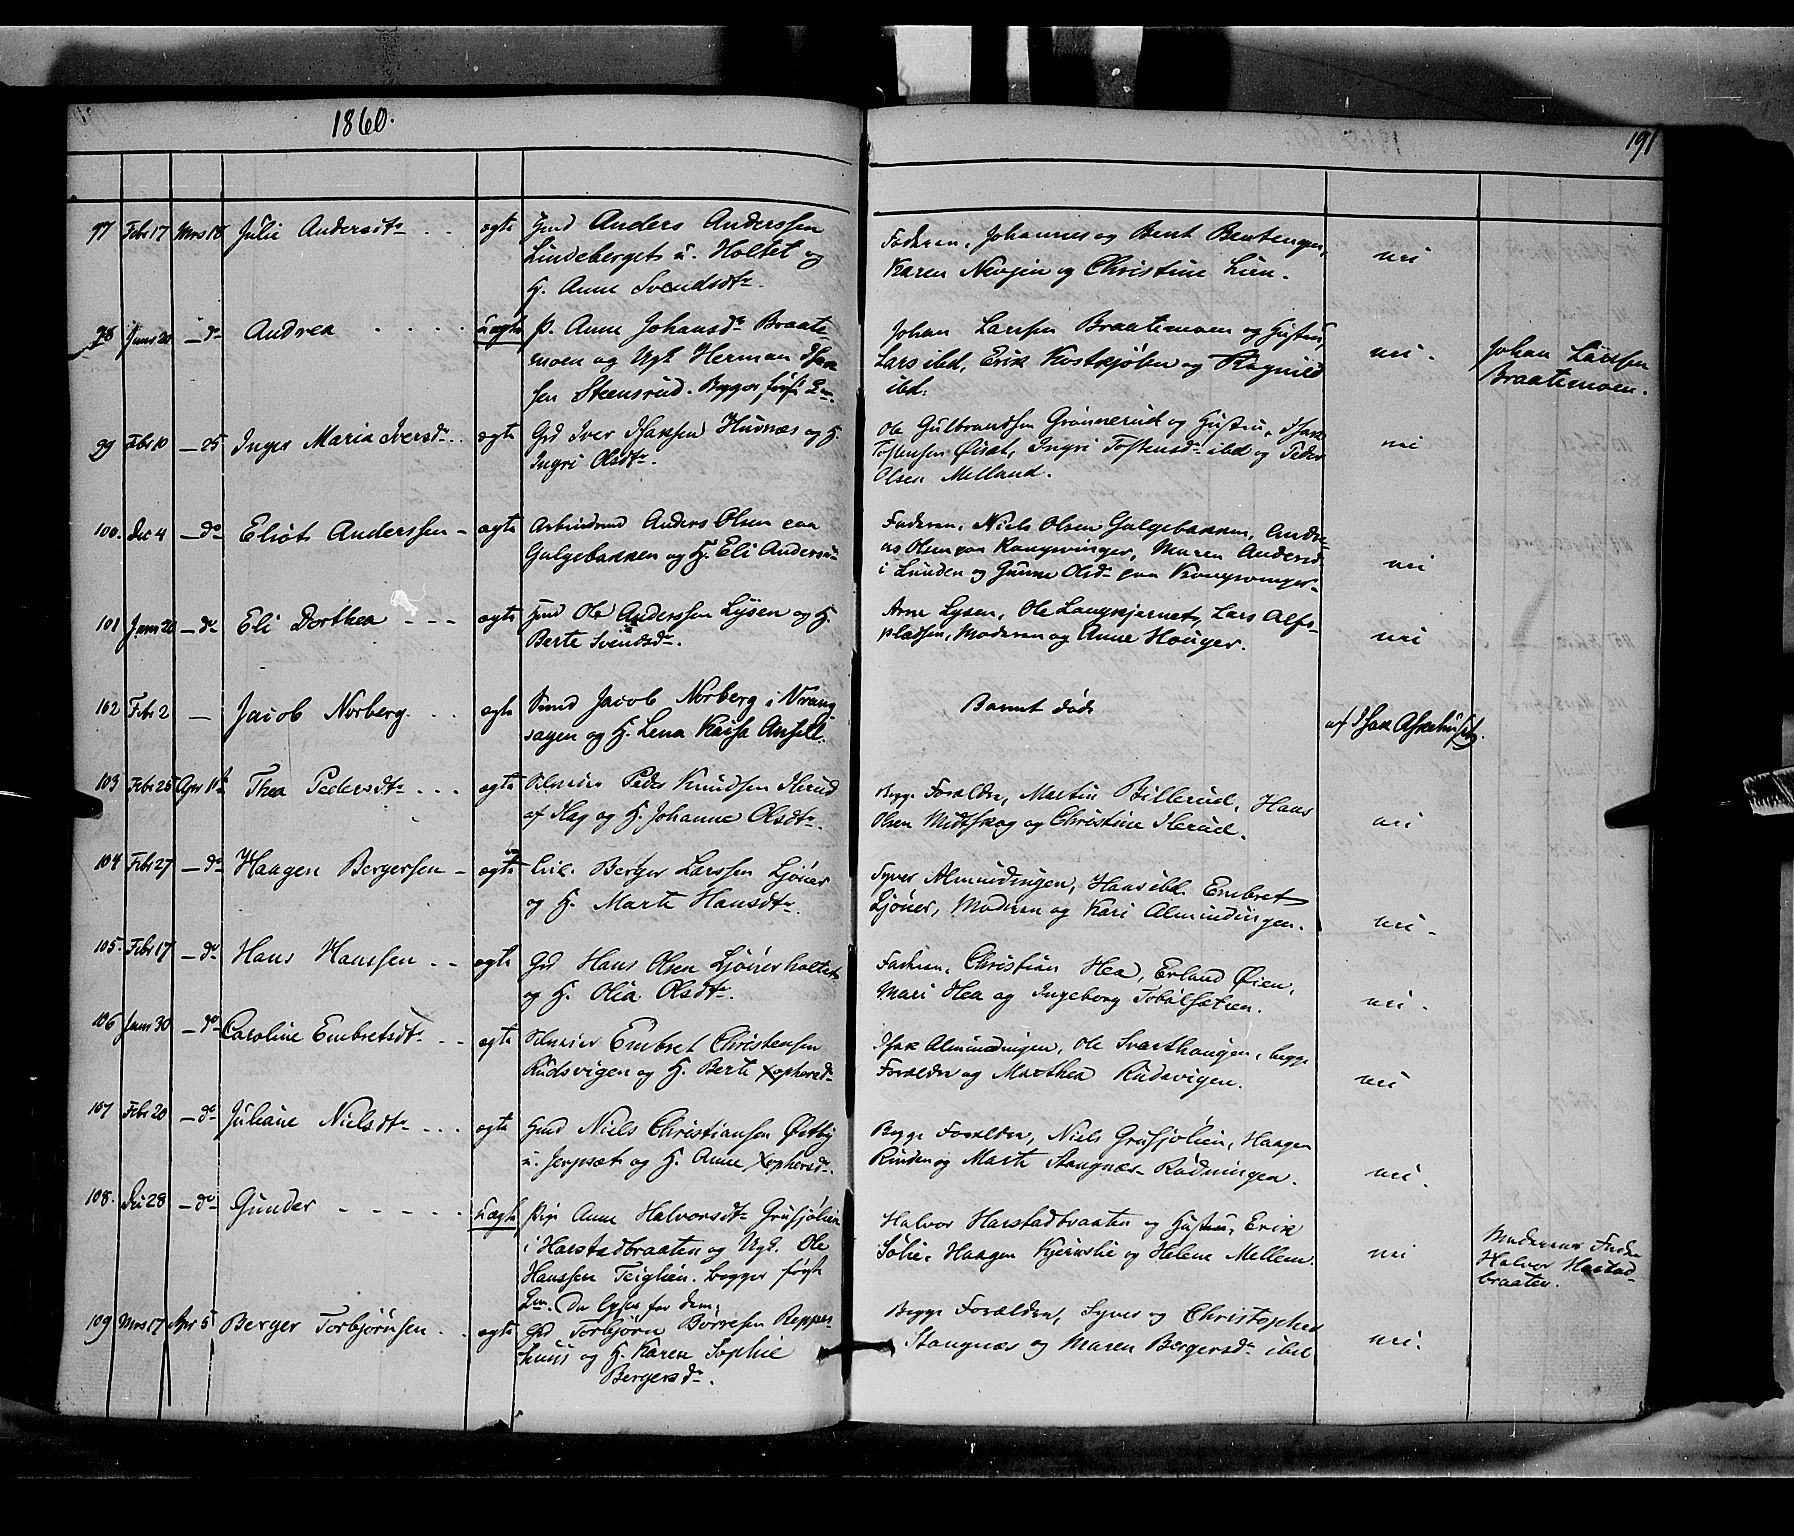 1860.
191
97 Febr 17 Mrs 18 Julie Andersdtr ægte Hmd Anders Anderssen
Lindeberget u. Holtet og
H. Anne Svendsdtr.
Faderen, Johannes og Bent Bentengen,
Karen Nevjen og Christine Lien.
nei
98 Janr 20 — do Andrea uægte P. Anne Johansdr Braate
moen og Ugk Herman Isak
sen Steensrud. Begges første Lm.
Johan Larssen Braatemoen og Hustru,
Lars ibd, Erik Kostkjølen og Ragnild
ibd.
nei.
Johan Larssen
Braatemoen.
99 Febr 10 — 25 Inger Maria Iversdr ægte Grd Iver Isaksen Husnæs og H.
Ingri Olsdtr.
Ole Gulbrandsen Grønnerud og Hustru, Isak
Tostensen Øisæt, Ingri Tostensdr ibd og Peder
Olsen Melland.
nei
100. Dec 4 — do Eliot Anderssen ægte Arbeidsmd Anders Olsen paa
Galgebakken og H. Eli Andersd
Faderen, Niels Olsen Galgebakken, Andre-
as Olsen paa Kongsvinger, Maren Andersd
i Lunden og Gunne Olsdr paa Kongsvinger
nei
101 Janr 20 — do Eli Dorthea ægte Hmd Ole Anderssen Lysen og H.
Berte Svendsdr.
Arne Lysen, Ole Langkjernet, Lars Alfs-
pladsen, Moderen og Anne Houger.
nei
102 Febr 2 — Jacob Norberg ægte Smed Jacob Norberg i Vrang
sagen og H. Lena Kaisa
Barnet døde
af Isak
103 Febr 25 Apr 1 Thea Pedersdtr ægte Selveier Peder Knudsen Skrud
af Hag og H. Johanne Olsdtr.
Begge Forældre, Martin Billerud, Hans
Olsen Midtskog og Christine Skrud.
nei
104 Febr 27 — do Haagen Bergersen ægte Berger Larssen Ljøner
og H. Marte Hansdtr.
Syver Almindingen, Hans ibd. Embret
Ljøner, Moderen og Kari Almindingen.
nei.
105. Febr 17 — do Hans Hanssen ægte Grd Hans Olsen Ljønerholtet
og H. Olia Olsdtr.
Faderen, Christian Hea, Erland Øien,
Mari Hea og Ingeborg Tobølsætren.
nei.
106 Janr 30 — do Caroline Embretsdtr ægte Selveier Embret Christensen
Rudsvigen og H. Berte Xophersdr
Isak Almindingen, Ole Svarthaugen, begge
Forældre og Marthea Rudsvigen.
nei
107 Febr 20 — do Juliane Nielsdtr ægte Hmd Niels Christiansen Østby
u. Jerpsæt og H. Anne Xophersdr.
Begge Forældre, Niels Grusjølien, Haagen
Rinden og Marte Stangnæs-Rødningen.
nei.
108. Dec 28 — do Gunder uægte Pige Anne Halvorsdtr Grusjølien
i Harstadbraaten og Ugk. Ole
Hanssen Teiglien. Begges første
Lm. Der lyses for dem.
Halvor Harstadbraaten og Hustru, Erik
Sølie, Haagen Kjernslie og Helene Mellem.
nei
Moderens Fader
Halvor Harstad-
braaten.
109 Mrs 17 Apr 5 Berger Torbjørnsen ægte Grd Torbjørn Børresen Repper
huus og H. Karen Sophie
Bergersdr.
Begge Forældre, Syver og Christopher
Stangnæs og Maren Bergersdr ibd
nei.